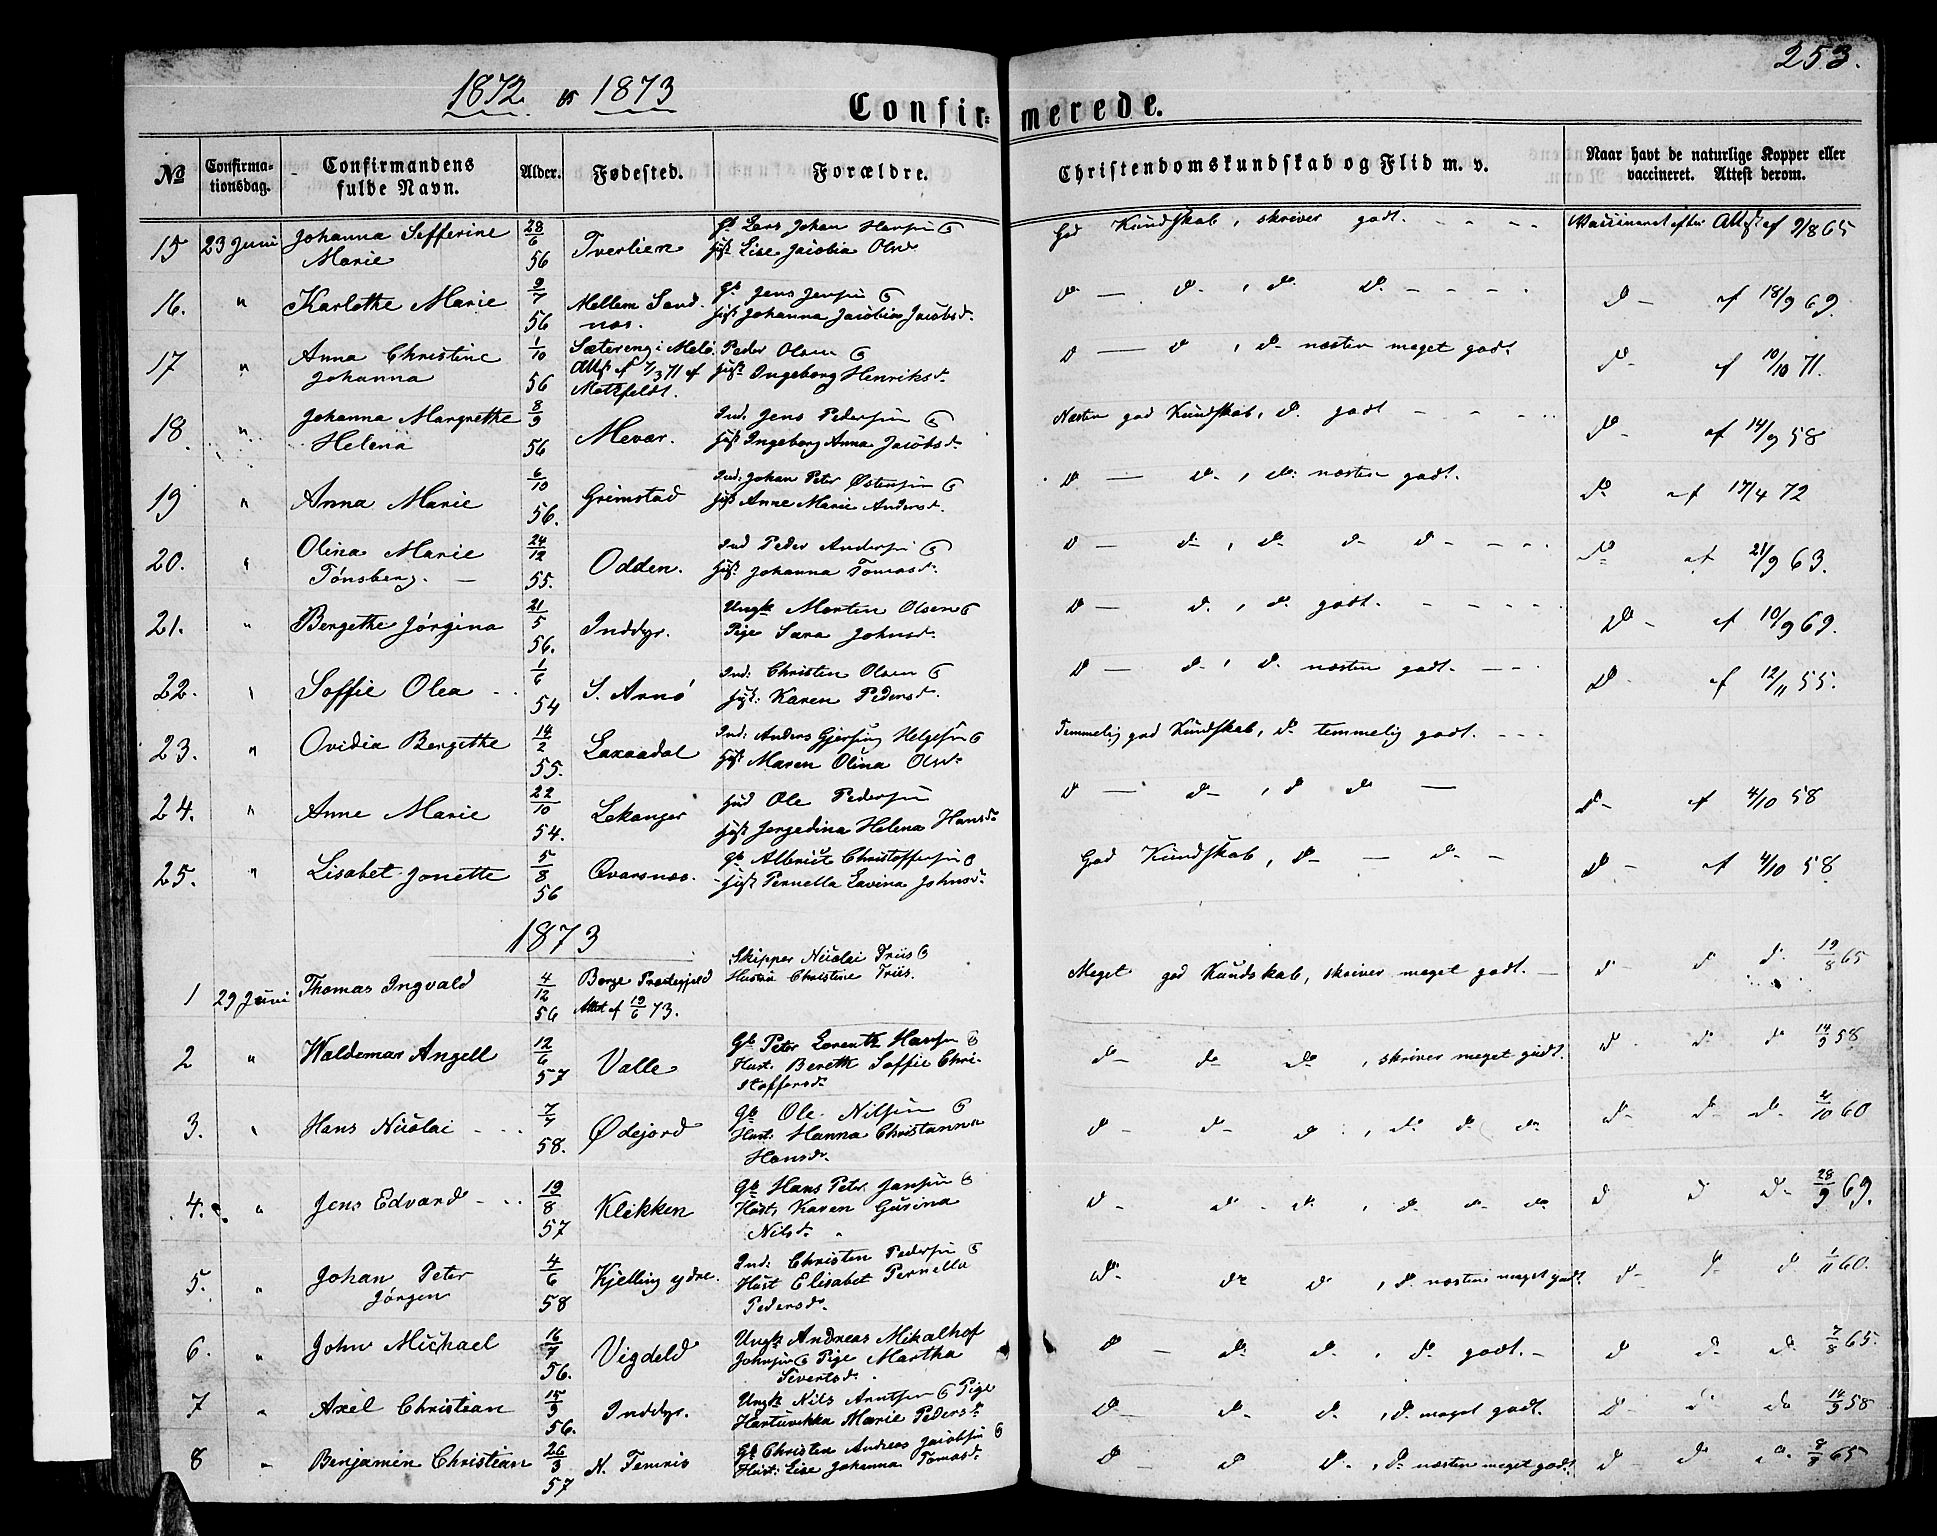 253.
1872 1873
Confirmerede.
No Confirmationsdag. Confirmandens fulde Navn. Alder. Fødested. Forældre. Christendomskundskab og Flid m. v. Naar havt de naturlige Kopper eller vaccineret. Attest derom.
15 23 Juni Johanna Sefferine 28/6 Tverlien Lars Johan God Kundskab, skriver godt. Vaccineret efter Attest af 9/8 65
Marie 56 Lise Jacobia Olsd
16. " Karlothe Marie 9/7 Mellem Sand- Gb Jens Jensen D - D. , D. D. D - af 18/9 69.
56 næs. Hust Johanna Jacobia Jacobsd.
17 " Anna Christine 1/10 Sætereng i Melø. Peder Olsen D - D , D. næsten meget godt. D. af 10/10 71.
Johanna Attst af 1/3 71 af Hust Ingeborg Henriksd.
56 Motzfeldt.
18. " Johanna Margrethe 8/9 Mevær. Ind. Jens Pedersen Næsten god Kundskab, D. godt D. af 14/9 58
Helena 56 Hust Ingeborg Anna Jacobsd.
19 " Anna Marie 6/10 Grimstad Ind. Johan Peter Østensen D - D. , D. næsten godt. D. af 17/4 72
56. Hust Anne Marie Andersd.
20. " Olina Marie 24/12 Odden. Ind Peder Andersen D - D. , D. D. D. D. af 21/9 63.
Tønsberg. 55. Hust. Johanna Tomasd.
21. " Bergethe Jørgina 21/5 Inddyr. Ungk Morten Olsen D - D. , D. godt. D - af 10/9 69.
56. Pige Sara Johnsd.
22. " Soffie Olea 1/6 S. Arnø Ind: Christen Olsen D - D. , D. næsten godt. D. af 12/11 55.
54 Hust: Karen Pedersd.
23. " Ovidia Bergethe 14/2 Laxaadal Ind: Anders Helgesen Temmelig god Kundskab, D. temmelig godt.
55. Hust Maren Olina Olsd.
24. " Anne Marie 22/10 Lekanger Ole Pedersen D - D. , D D - D - af 4/10 58
54. Hust Jergedina Helena Hansd.
25. " Lisabet Jonette 5/8 Qvarsnæs. Gb Albrict Christoffersen God Kundskab, D. - D. - D - af 4/10 58.
56 Hust Pernella Lavina Johnsd.
1873
1 29 Juni Thomas Ingvald 4/12 Borge Præstegjeld Skipper Nicolai Friis Meget god Kundskab, skriver meget godt. - D - D D. 19/8 65
56 Attst af 19/6 73. Hustru Christine Friis.
2 " Waldemar Angell 12/6 Valle Gb Peter Lorentz Hansen D - D. D. , skriver meget godt. D. D. D 14/9 58
57 Hust. Bereth Soffie Chri-
stoffersd.
3. " Hans Nicolai 7/7 Ødejord Gb Ole Nilsen D - D. D. , D. D. D. D. D. D. 4/10 60
58. Hust. Hanna Christanna
Hansd.
4. " Jens Edvard 19/8 Klikken Gb Hans Peter Jansen D. D. D. , D. D. D. D D D. 28/9 69.
57 Hust. Karen Gusina
Nilsd.
5. " Johan Peter 4/6 Kjelling ydre. Ind: Christen Pedersen D. D. D. , D. næsten meget godt. D - D. D 1/11 60.
Jørgen 58 Hust Elisabet Pernella
Pedersd.
6. " John Michael 16/7 Vigdeld Ungk Andreas Mikalhof D - D. D. , D. godt. - D D. D. 7/8 65.
56. Johnsen Pige Martha
Sivertsd.
7 " Axel Christian 15/9 Inddyr. Ungk Nils Arntsen Pige D - D. D. , D. meget godt. D - D. D. 14/9 58
56. Hartvikka Marie Pedersd.
8 " Benjamin Christian 26/3 N. Femris Gb Christen Andreas Jacobsen D - D D. , D. næsten meget godt. D D D. 8/8 65
57 Hust: Lise Johanna Tomasd.